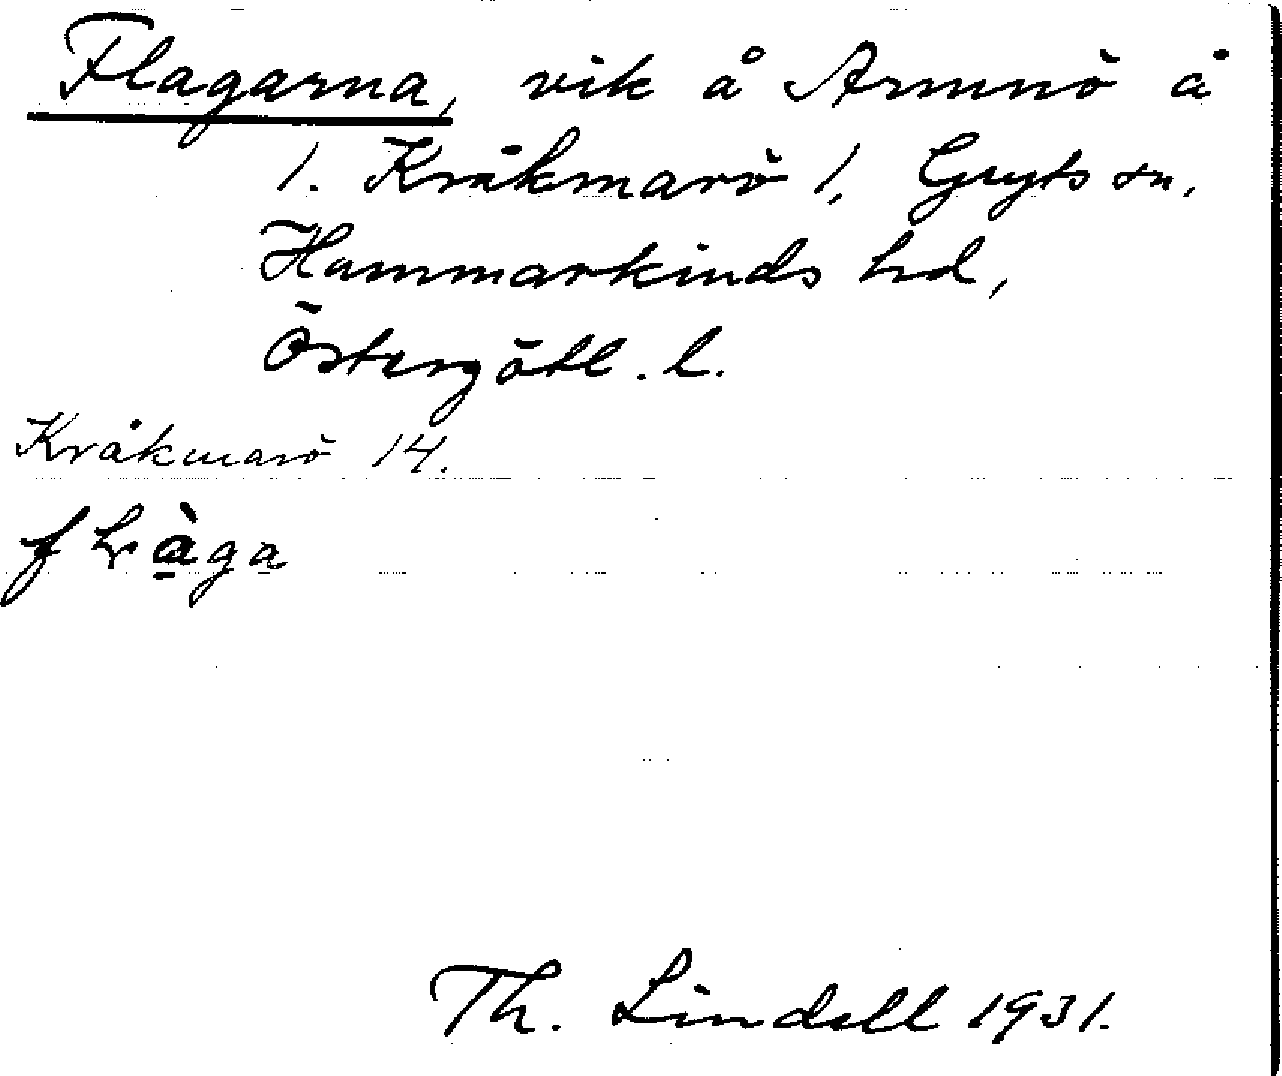 Flagarna, vik å Armnö å
1. Kråkmarö 1, Gryts sn.
Hammarkinds hd,
Östergötl. l.
Kråkmarö 14.
Th. Lindell 1931.